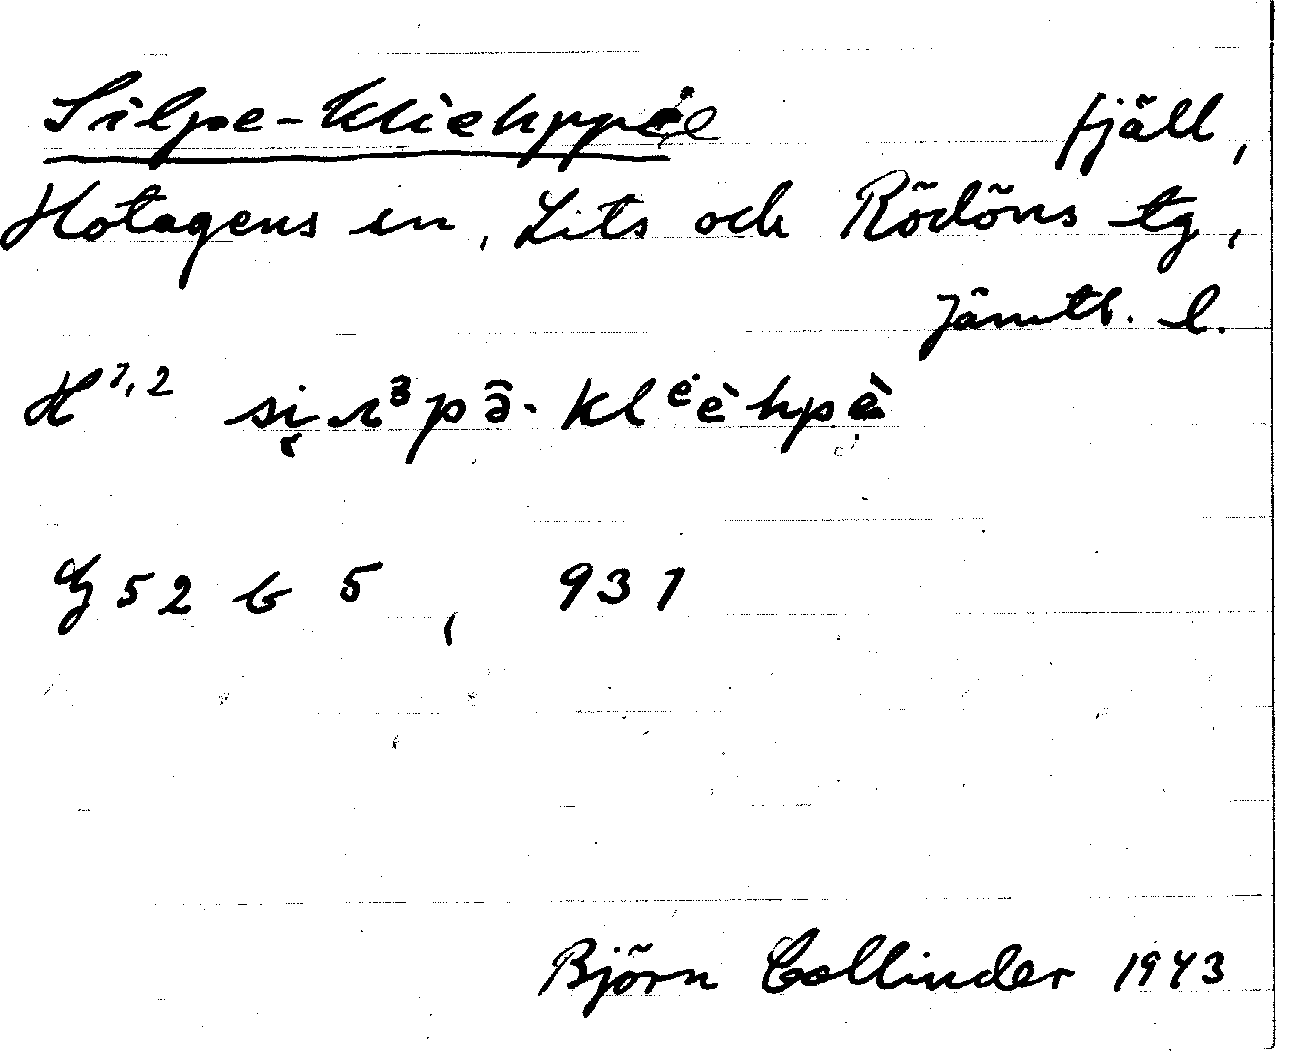 Silpe-kliehppie fjäll,
Hotagens sn, Lits och Rödöns tg,
Jämtl. l.
H 1,2
G 52 b 5, 931
Björn Collinder 1943